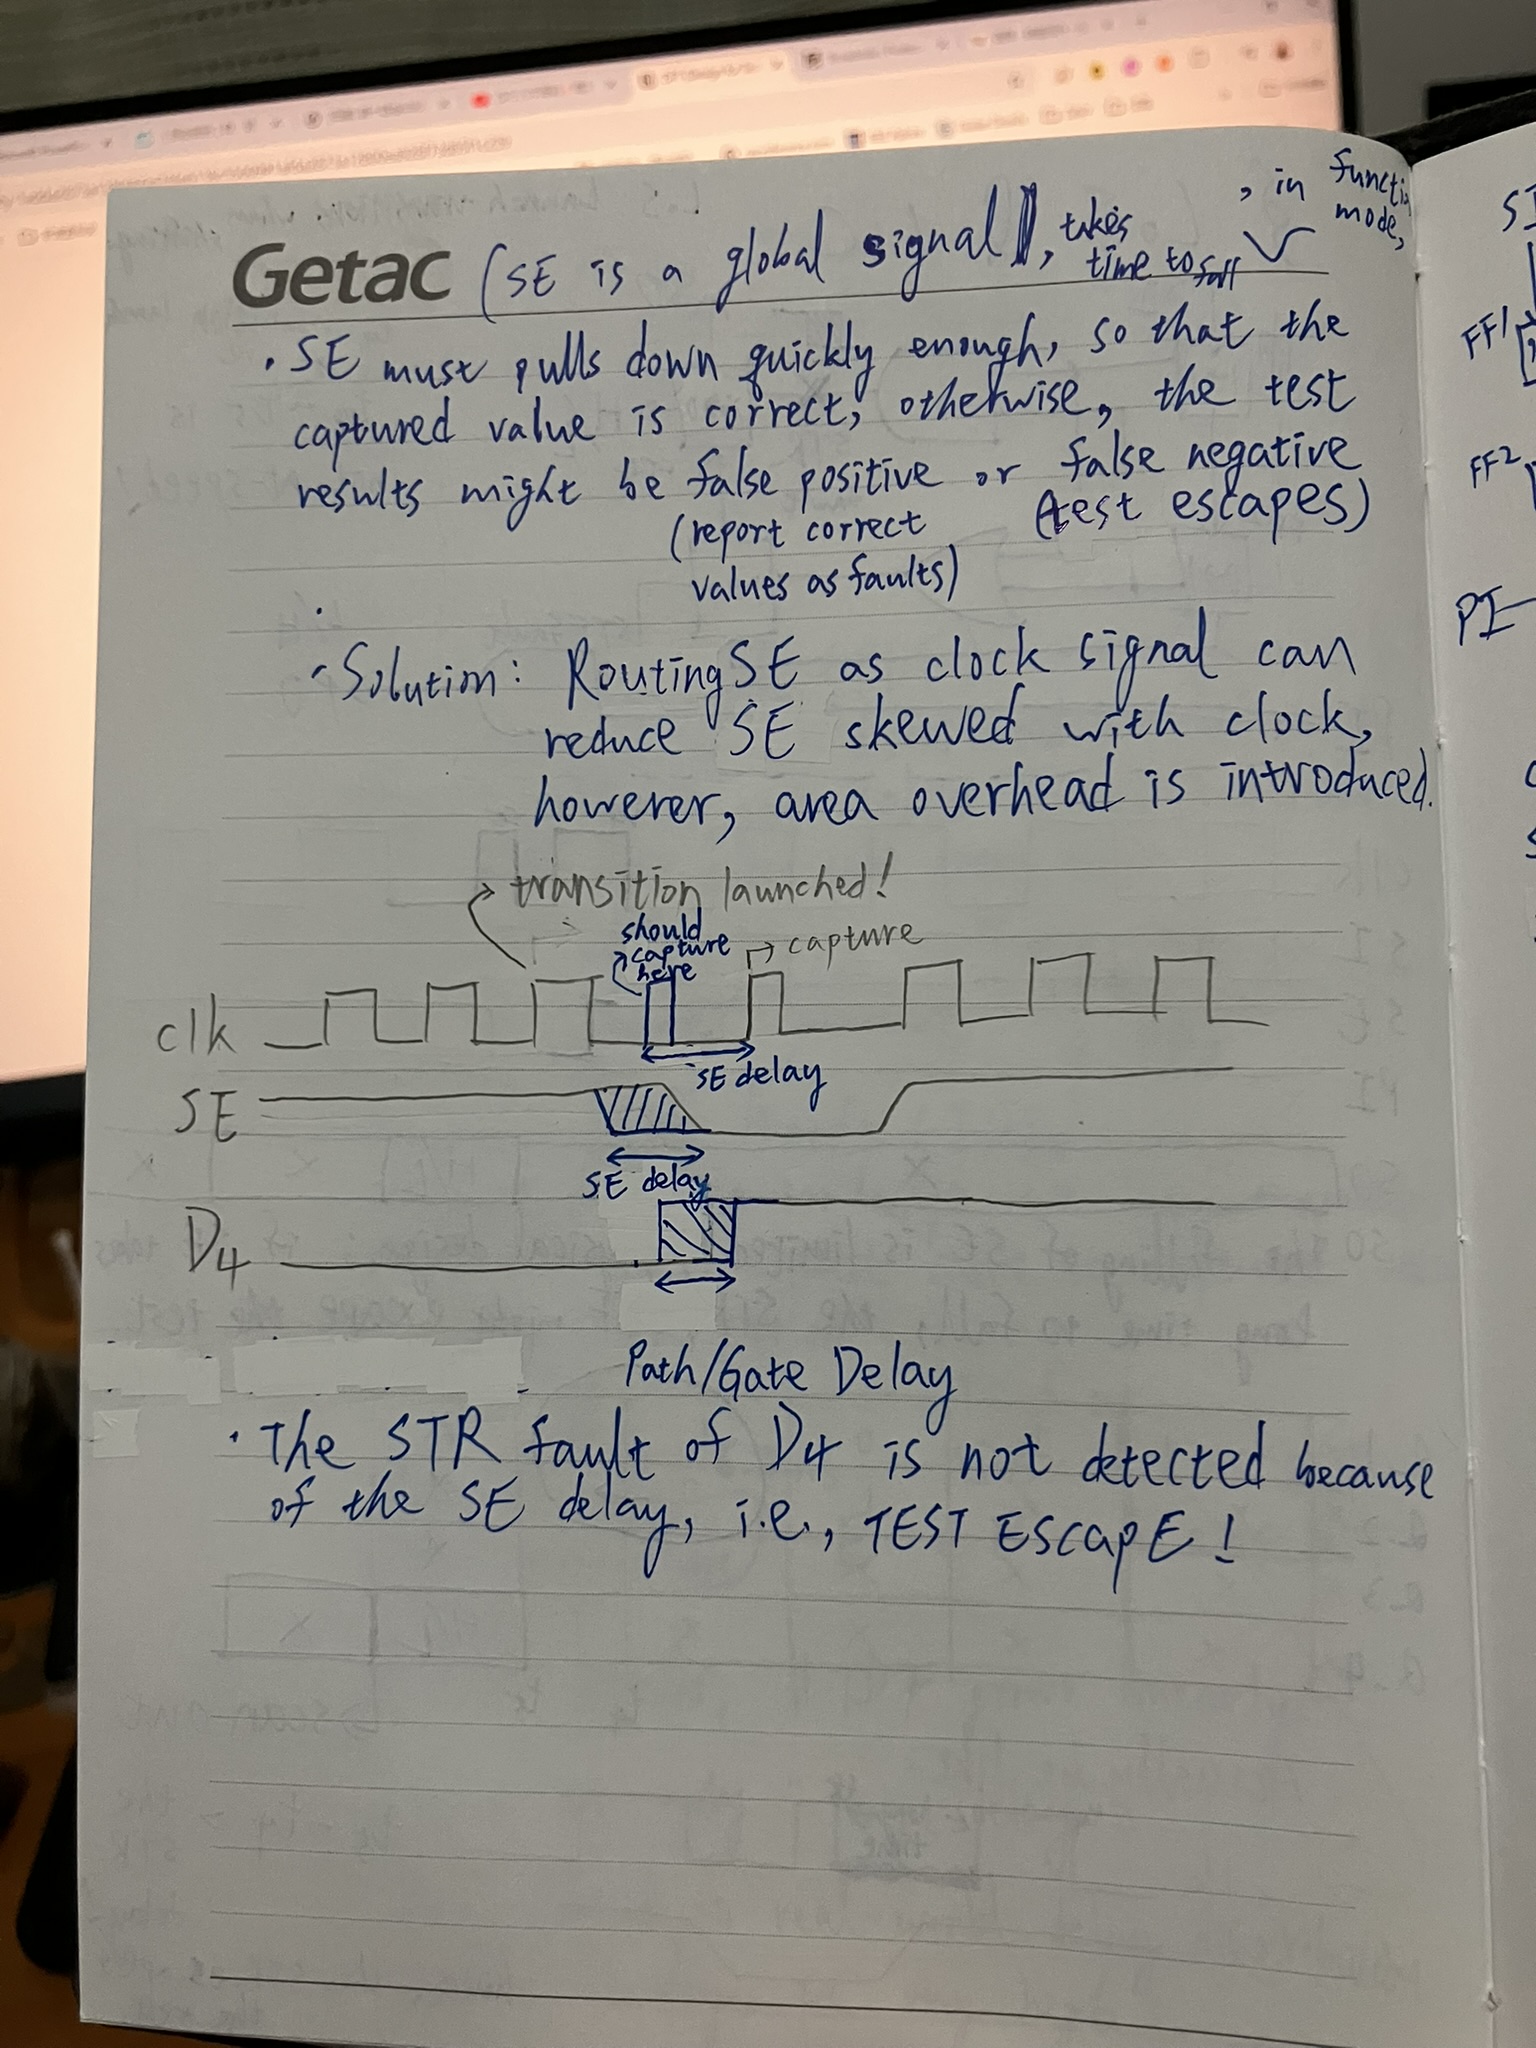 , in function
mode,
Getac (SE is a global signal, takes
time to fall
• SE must pulls down quickly enough, so that the
captured value is correct, otherwise, the test
results might be false positive or false negative
(report correct (test escapes)
values as faults)
• Solution: Routing SE as clock signal can
reduce SE skewed with clock,
however, area overhead is introduced.
transition launched!
should
capture
here
capture
clk
SE delay
SE
SE delay
D4
Path/Gate Delay
• The STR fault of D4 is not detected because
of the SE delay, i.e., TEST EscapE!
FF1
FF2
PI